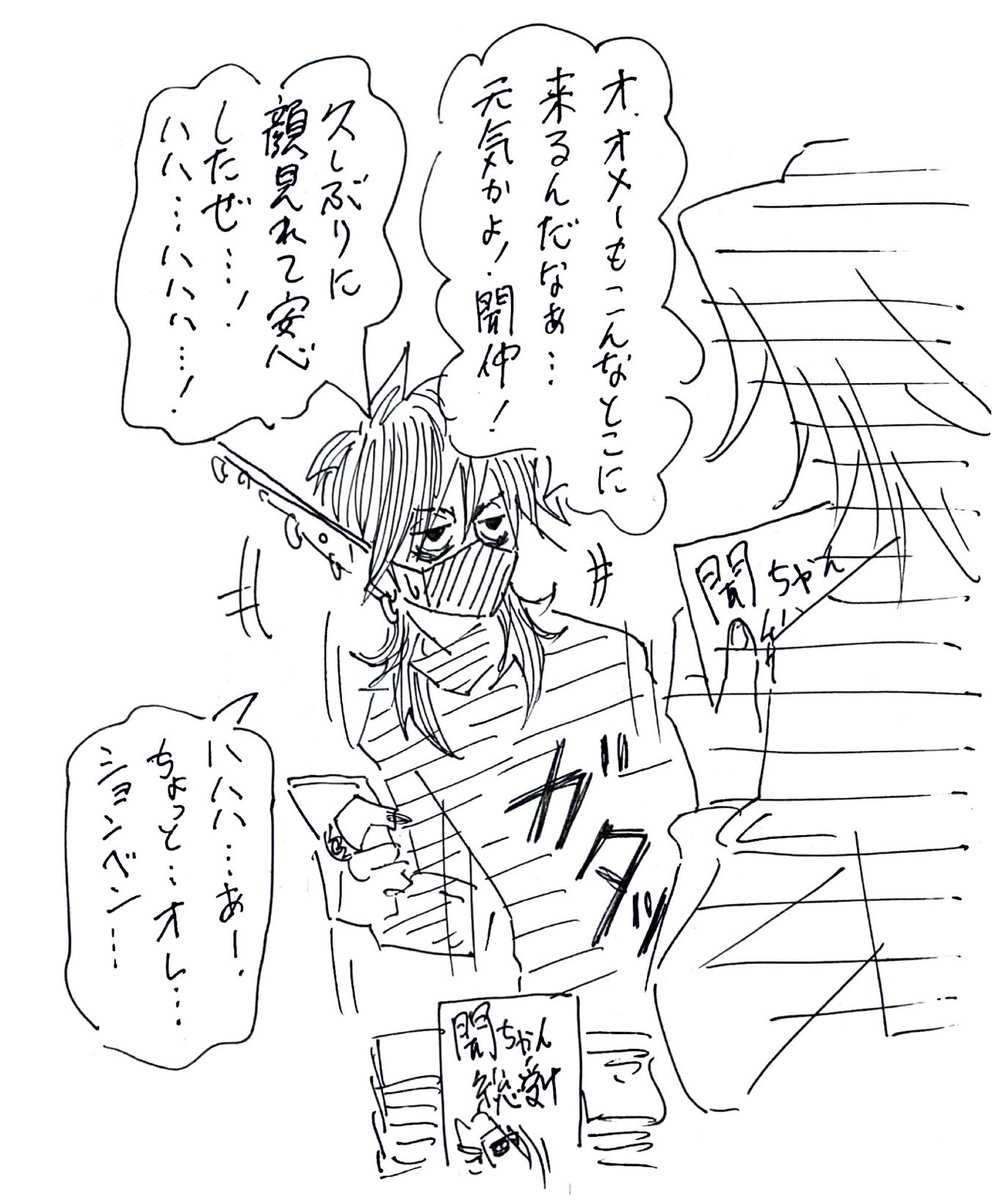 オ、オメーもこんなとこに
来るんだなぁ…
元気かよ!聞仲!
久しぶりに
顔見れて安心
したぜ…!
ハハ…ハハハ…!
聞ちゃん
ガタッ
ハハハ…あー、
ちょっと…オレ…
ションベン…
聞ちゃん
総受け